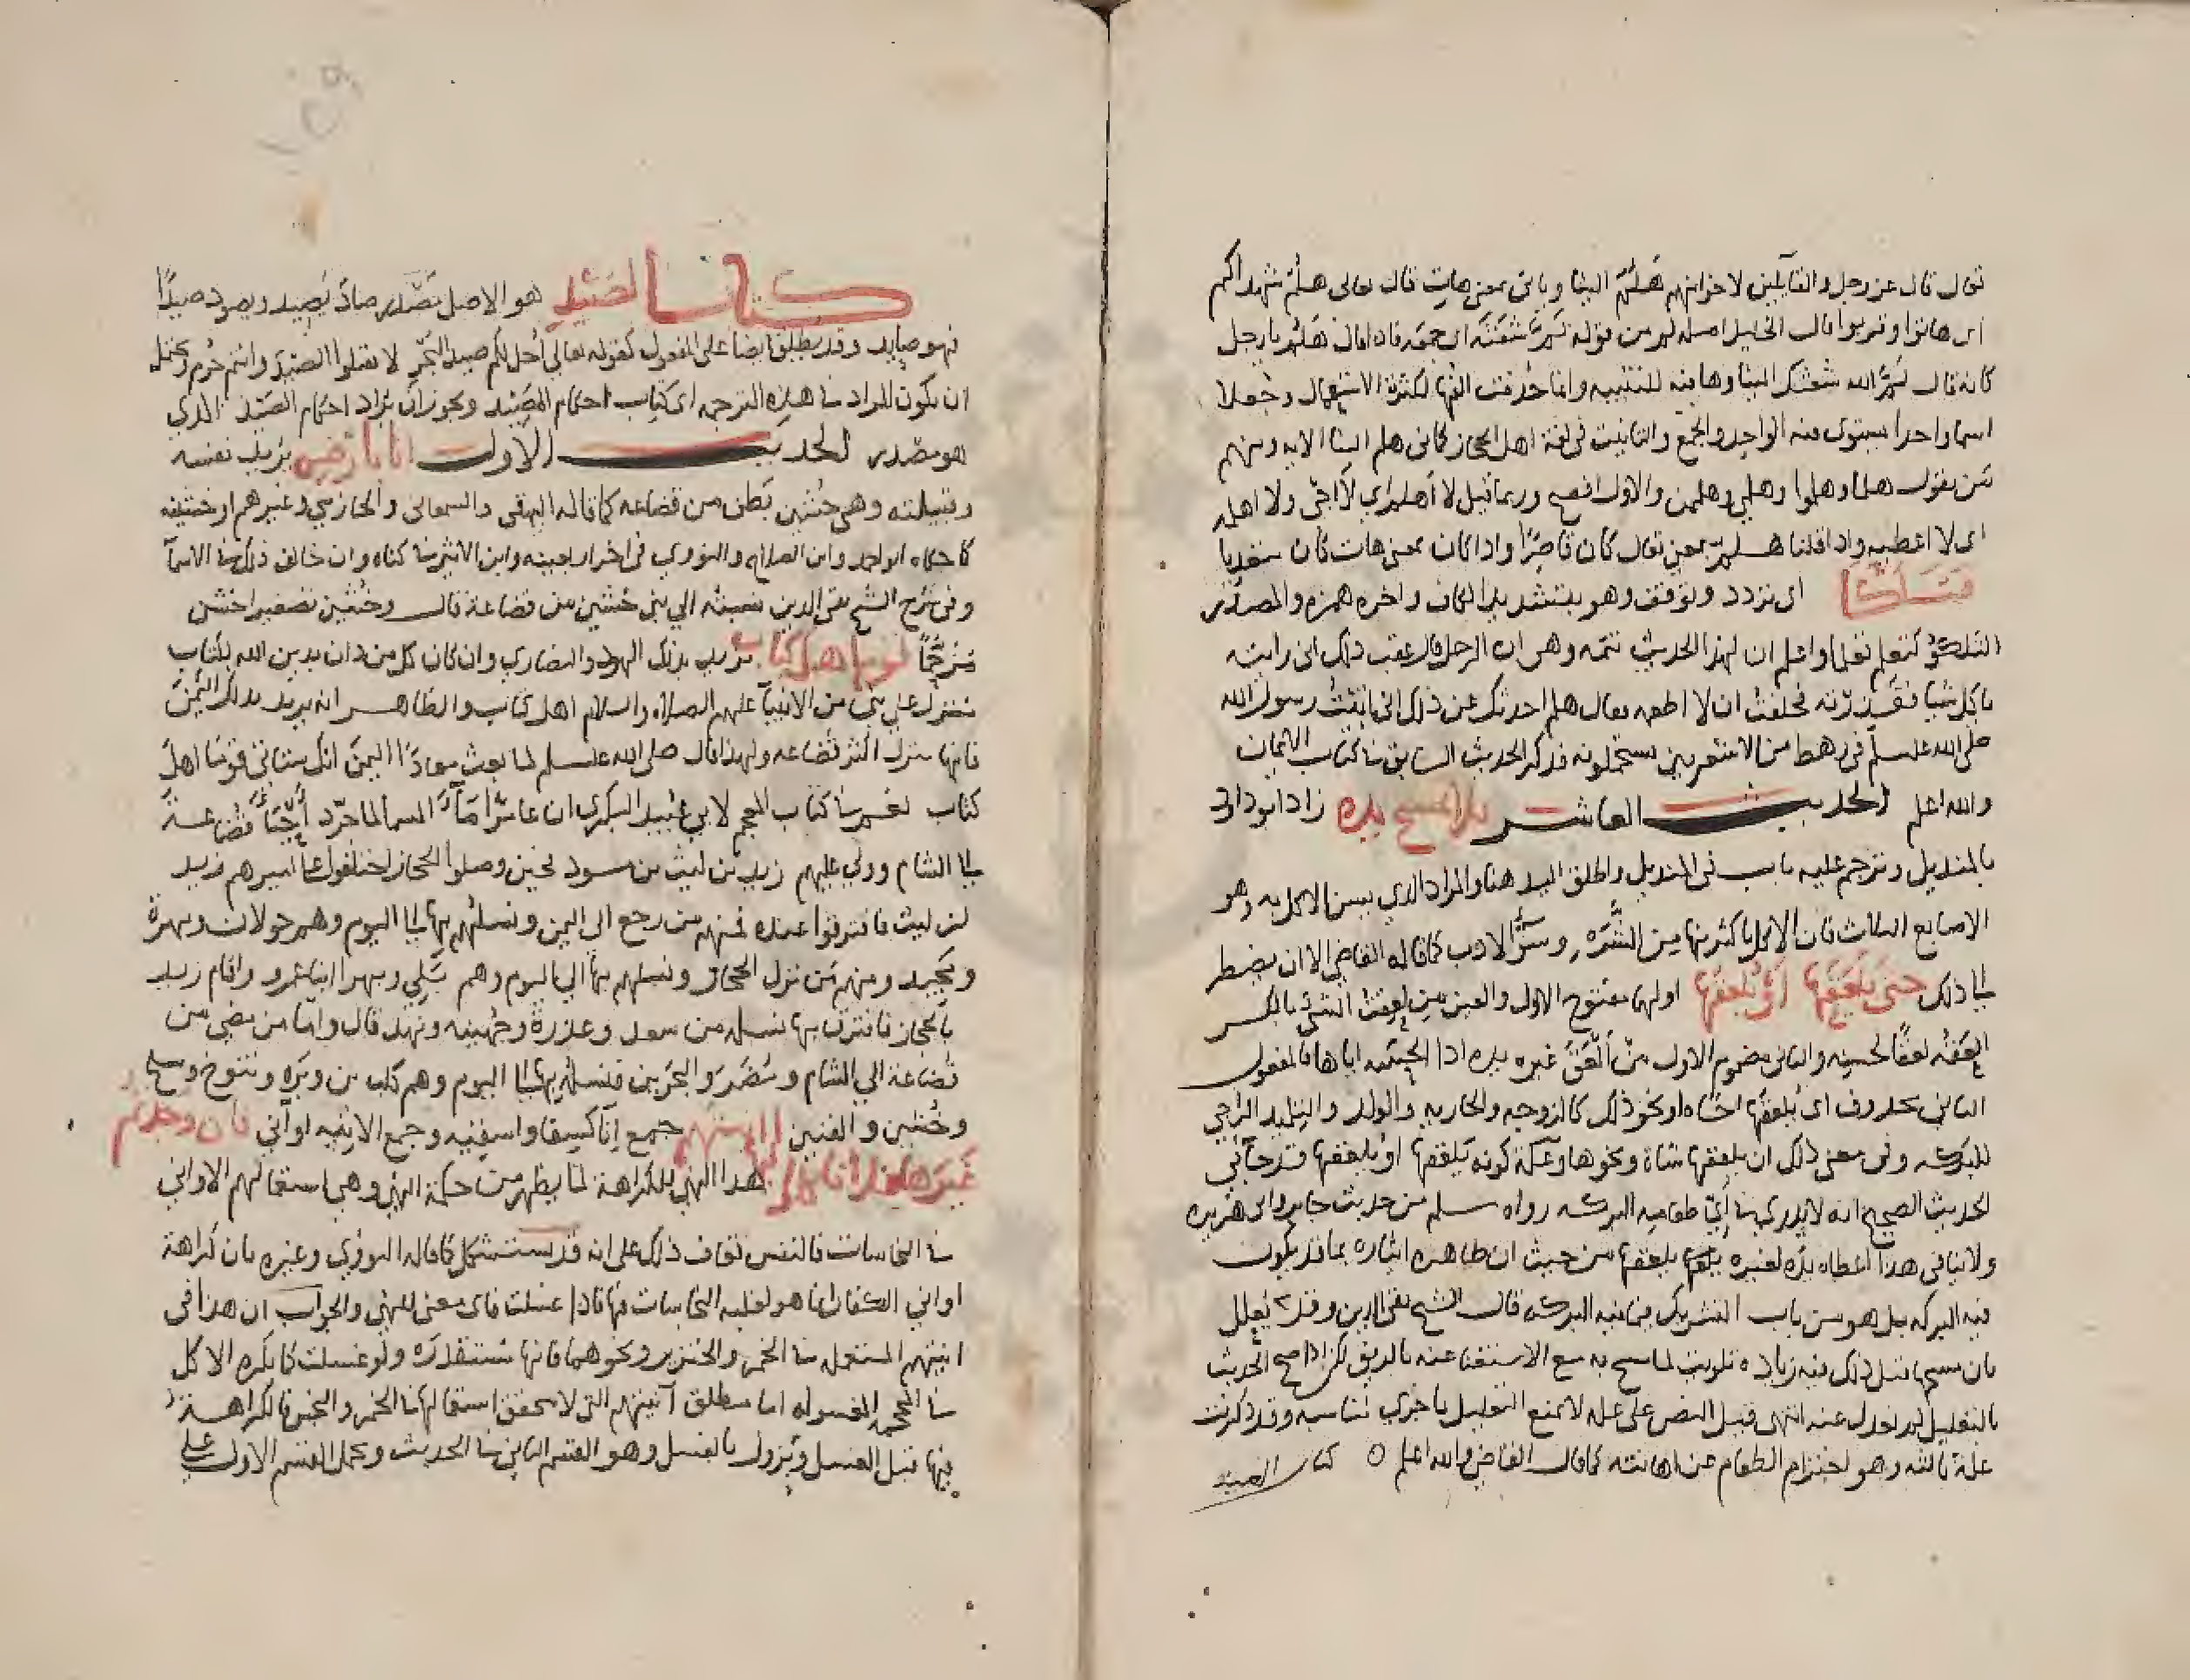 تعال قال عز وجل والقايلين لاخوانهم هلم الينا وياتي بمعنى هات قال تعالى هلم شهداكم
اي هاتوا وقربوا قال الخليل اصله لم من قوله لم الله شعثه اي جمعه فاذا قال هلم يا رجل
كانه قال لم الله شعثك الينا وها منه للتنبيه وانما حذفت الفها لكثرة الاستعمال وجعلا
اسما واحدا يستوى فيه الواحد والجمع والتانيث في لغة اهل الحجاز كما في هلم الينا الايه ومنهم
من يقول هلما وهلموا وهلمي وهلممن والاول افصح وربما قيل لا اهلم اي لا اجي ولا اهلمه
اى لا اعطيه واذا قلنا هلم بمعنى تعال كان قاصرا واذا كان بمعنى هات كان متعديا
فتلكا اى تردد وتوقف وهو بتشديد الكاف واخره همزه والمصدر
التلكؤ كتعلم تعلما واعلم ان لهذا الحديث تتمه وهي ان الرجل قال عقب ذلك انى رايته
ياكل شيا فقذرته فحلفت ان لا اطعمه فقال هلم احدثك عن ذلك انى اتيت رسول الله
صلى الله عليه وسلم في رهط من الاشعريين نستحمله فذكر الحديث السابق في كتاب الايمان
والله اعلم الحديث العاشر فلا يمسح يده زاد ابو داود
بالمنديل وترجم عليه باب في المنديل واطلق اليد هنا والمراد الذي يسن الاكل به وهو
الاصابع الثلاث فان الاكل باكثر منها من الشره وسوء الادب كما قاله القاضي الا ان يضطر
الى ذلك حتى يلعقها او يلعقها اولهما مفتوح الاول والعين من لعقت الشي بالكسر
العقه لعقا لحسته والثاني مضموم الاول من العق غيره يده اذا الحسه اياها فالمفعول
الثاني محذوف اى يلعقها انسانا او نحو ذلك كالزوجه والجاريه والولد والتلميذ الراجي
للبركه وفي معنى ذلك ان يلعقها شاة ونحوها وعلة كونه يلعقها او يلعقها قد جا في
الحديث الصحيح انه لا يدري في اي طعامه البركه رواه مسلم من حديث جابر وابى هريره
ولا ينافى هذا اعطاه يده لغيره يلعقها من حيث ان ظاهره ايثاره بما قد يكون
فيه البركه بل هو من باب التشريك فيما فيه البركه قال الشيخ تقي الدين وقد يعلل
بان مسحها قبل ذلك فيه زياده تلويث لما مسح به مع الاستغنا عنه بالريق لكن اذا صح الحديث
بالتعليل لم يعدل عنه انتهى قيل النص على عله لا يمنع التعليل باخرى تناسبه وقد ذكرت
علة ثالثه وهو احترام الطعام عن اهانته كما قال القاضي والله اعلم ٥ كتاب الصيد
كتاب الصيد هو الاصل مصدر صاد يصيد ويصود صيدا
فهو صايد وقد يطلق ايضا على المفعول كقوله تعالى احل لكم صيد البحر لا تقتلوا الصيد وانتم حرم ويحتمل
ان يكون المراد في هذه الترجمه اى كتاب احكام المصيد ويجوز ان يراد احكام الصيد الذي
هو مصدر الحديث الاول انا بارض يريد نفسه
وقبيلته وهي خشين بطن من قضاعه كما قاله البيهقي والسمعاني والحازمي وغيرهم او خشينه
كما حكاه ابو احمد وابن الصلاح والنووي في اخر اربعينه وابن الاثير في كناه وان خالف ذلك في الاسما
وفي شرح الشيخ تقي الدين نسبته الي بني خشين من قضاعة قال وخشين تصغير اخشن
مرخما قوم اهل كتاب يريد بذلك اليهود والنصارى وان كان كل من دان بدين الله بكتاب
منزل على نبي من الانبيا عليهم الصلاه والسلام اهل كتاب والظاهر انه يريد بذلك اليمن
فانها منزل اكثر قضاعه ولهذا قال صلى الله عليه وسلم لما بعث معاذا اليمن انك ستاتي قوما اهل
كتاب نعم في كتاب المعجم لابي عبيد البكري ان عامرا ما السما لما حرد قضاعة
الى الشام وولي عليهم زيد بن ليث بن سود فحين وصلوا الحجاز اختلفوا على اميرهم زيد
بن ليث فافترقوا عنده فمنهم من رجع الى اليمن ونسلهم بها الى اليوم وهم خولان ومهرة
ومجيد ومنهم من نزل الحجاز ونسلهم بها الي اليوم وهم بلي وبهرا ابنا عمرو واقام زيد
بالحجاز فانتزل بها نسله من سعد وعذرة وجهينه ونهد قال واما من مضى من
قضاعة الي الشام ومضر والبحرين فنسلهم بها الى اليوم وهم كلب بن وبره وتنوخ وسليح
وخشين والقين انيتهم جمع انا كسقا واسقيه وجمع الانيه اواني فان وجدتم
غيرها فلا تاكلوا هذا النهي للكراهة لما يظهر من حكمة النهي وهي استعمالهم الاواني
في النجاسات فالنفس تعاف ذلك على انه قد يستشكل كما قاله النووي وغيره بان كراهة
اواني الكفار انما هو لغلبه النجاسات فيها فاذا غسلت فاى معنى للنهي والجواب ان هذا في
انيتهم المستعمله في الخمر والخنزير ونحوهما فانها مستقذره ولو غسلت كما يكره الاكل
في المحجمه المغسوله اما مطلق آنيتهم التى لا يتحقق استعمالها في الخمر والخنزير فالكراهة
فيها قبل الغسل وتزول بالغسل وهو القسم الثاني في الحديث ويحمل القسم الاول على